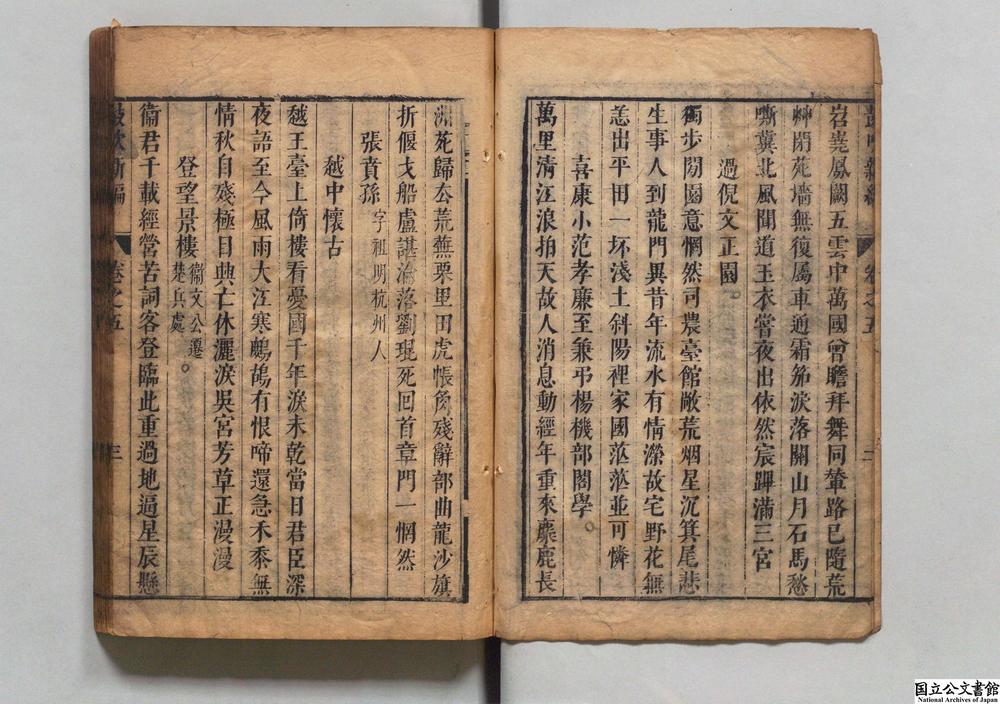 岧嶤鳳闕五雲中萬國曾瞻拜舞同輦路已隨荒
艸閉苑墻無復屬車通霜笳淚落關山月石馬愁
嘶冀北風聞道玉衣嘗夜出依然宸蹕滿三宮
過倪文正園
獨步閒園意惘然司農臺館敞荒烟星沉箕尾悲
生事人到龍門異昔年流水有情瀠故宅野花無
恙出平田一抔淺土斜陽裡家國茫茫並可憐
喜康小范孝廉至兼弔楊機部閣學
萬里清江浪拍天故人消息動經年重來麋鹿長
洲苑歸去荒蕪栗里田虎帳角殘辭部曲龍沙旗
折偃戈船盧諶淪落劉琨死回首章門一惘然
張賁孫字祖明杭州人
越中懷古
越王臺上倚樓看憂國千年淚未乾當日君臣深
夜語至今風雨大江寒鷓鴣有恨啼還急禾黍無
情秋自殘極目興亡休灑淚吳宮芳草正漫漫
登望景樓衞文公遷楚丘處
衞君千載經營苦詞客登臨此重過地逼星辰懸
卷之五
三
国立公文書館
National Archives of Japan